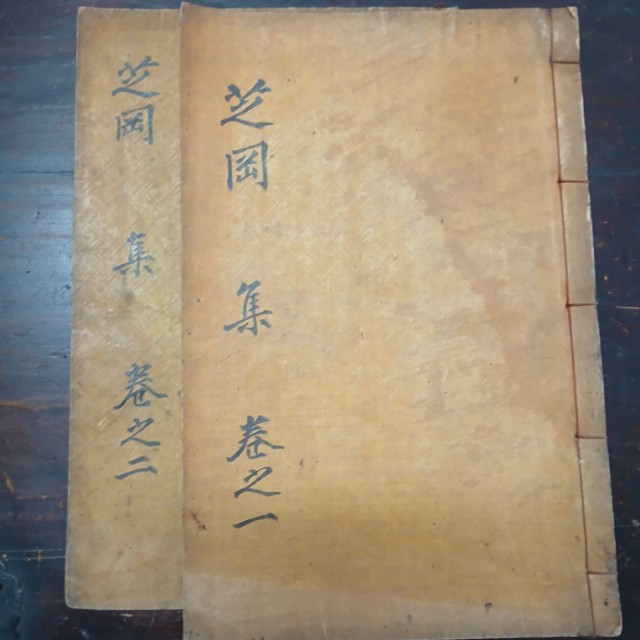 芝岡集 卷之一
芝岡集 卷之二